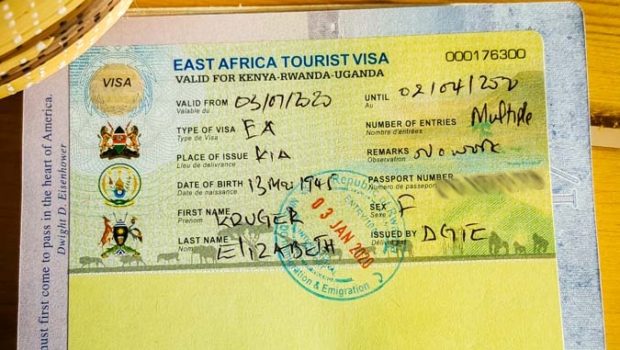 must first come to pass in the heart of America.
Dwight D. Eisenhower
EAST AFRICA TOURIST VISA
000176300
VISA
VALID FOR KENYA-RWANDA-UGANDA
VALID FROM 03/01/2020
Valable du
UNTIL 02/04/2020
Au
TYPE OF VISA EA
Type de Visa
NUMBER OF ENTRIES Multiple
Nombre d'entrées
PLACE OF ISSUE KIA
Lieu de délivrance
REMARKS No work
Observation
DATE OF BIRTH 13 Mar 1945
Date de naissance
PASSPORT NUMBER
Numéro de passeport
FIRST NAME KRUGER
Prénom
SEX F
Sexe
LAST NAME ELIZABETH
Nom
ISSUED BY DGIE
Délivré par
Republic
03 JAN 2020
& Emigration